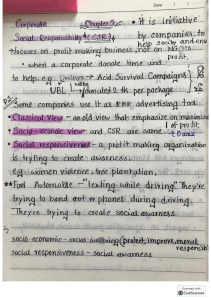 Date
Corporate
Chapter 5
• It is initiative
Social Responsibility (CSR)
by companies to
help society and env
• focuses on profit making business, not on NGO's
profit.
• when a corporate donate time and
to help. e.g. Unilever - Acid Survival Campaigns
UBL donated 2 tk. per package.
CSR e.g.
• Some companies use it as advertising tool.
• Classical View - an old view that emphasize on maximize
of profit
• Socio-economic view and CSR are same.
• Social responsiveness - a profit making organization
is trying to create awareness.
e.g. women violence, tree plantation,
Ford Automobile - "texting while driving". They're
trying to band out phones during driving.
They're trying to create social awarness
socio-economic - social wellbeing (protect, improve, moral
responsib
social responsiveness - social awarness
Scanned with
CamScanner